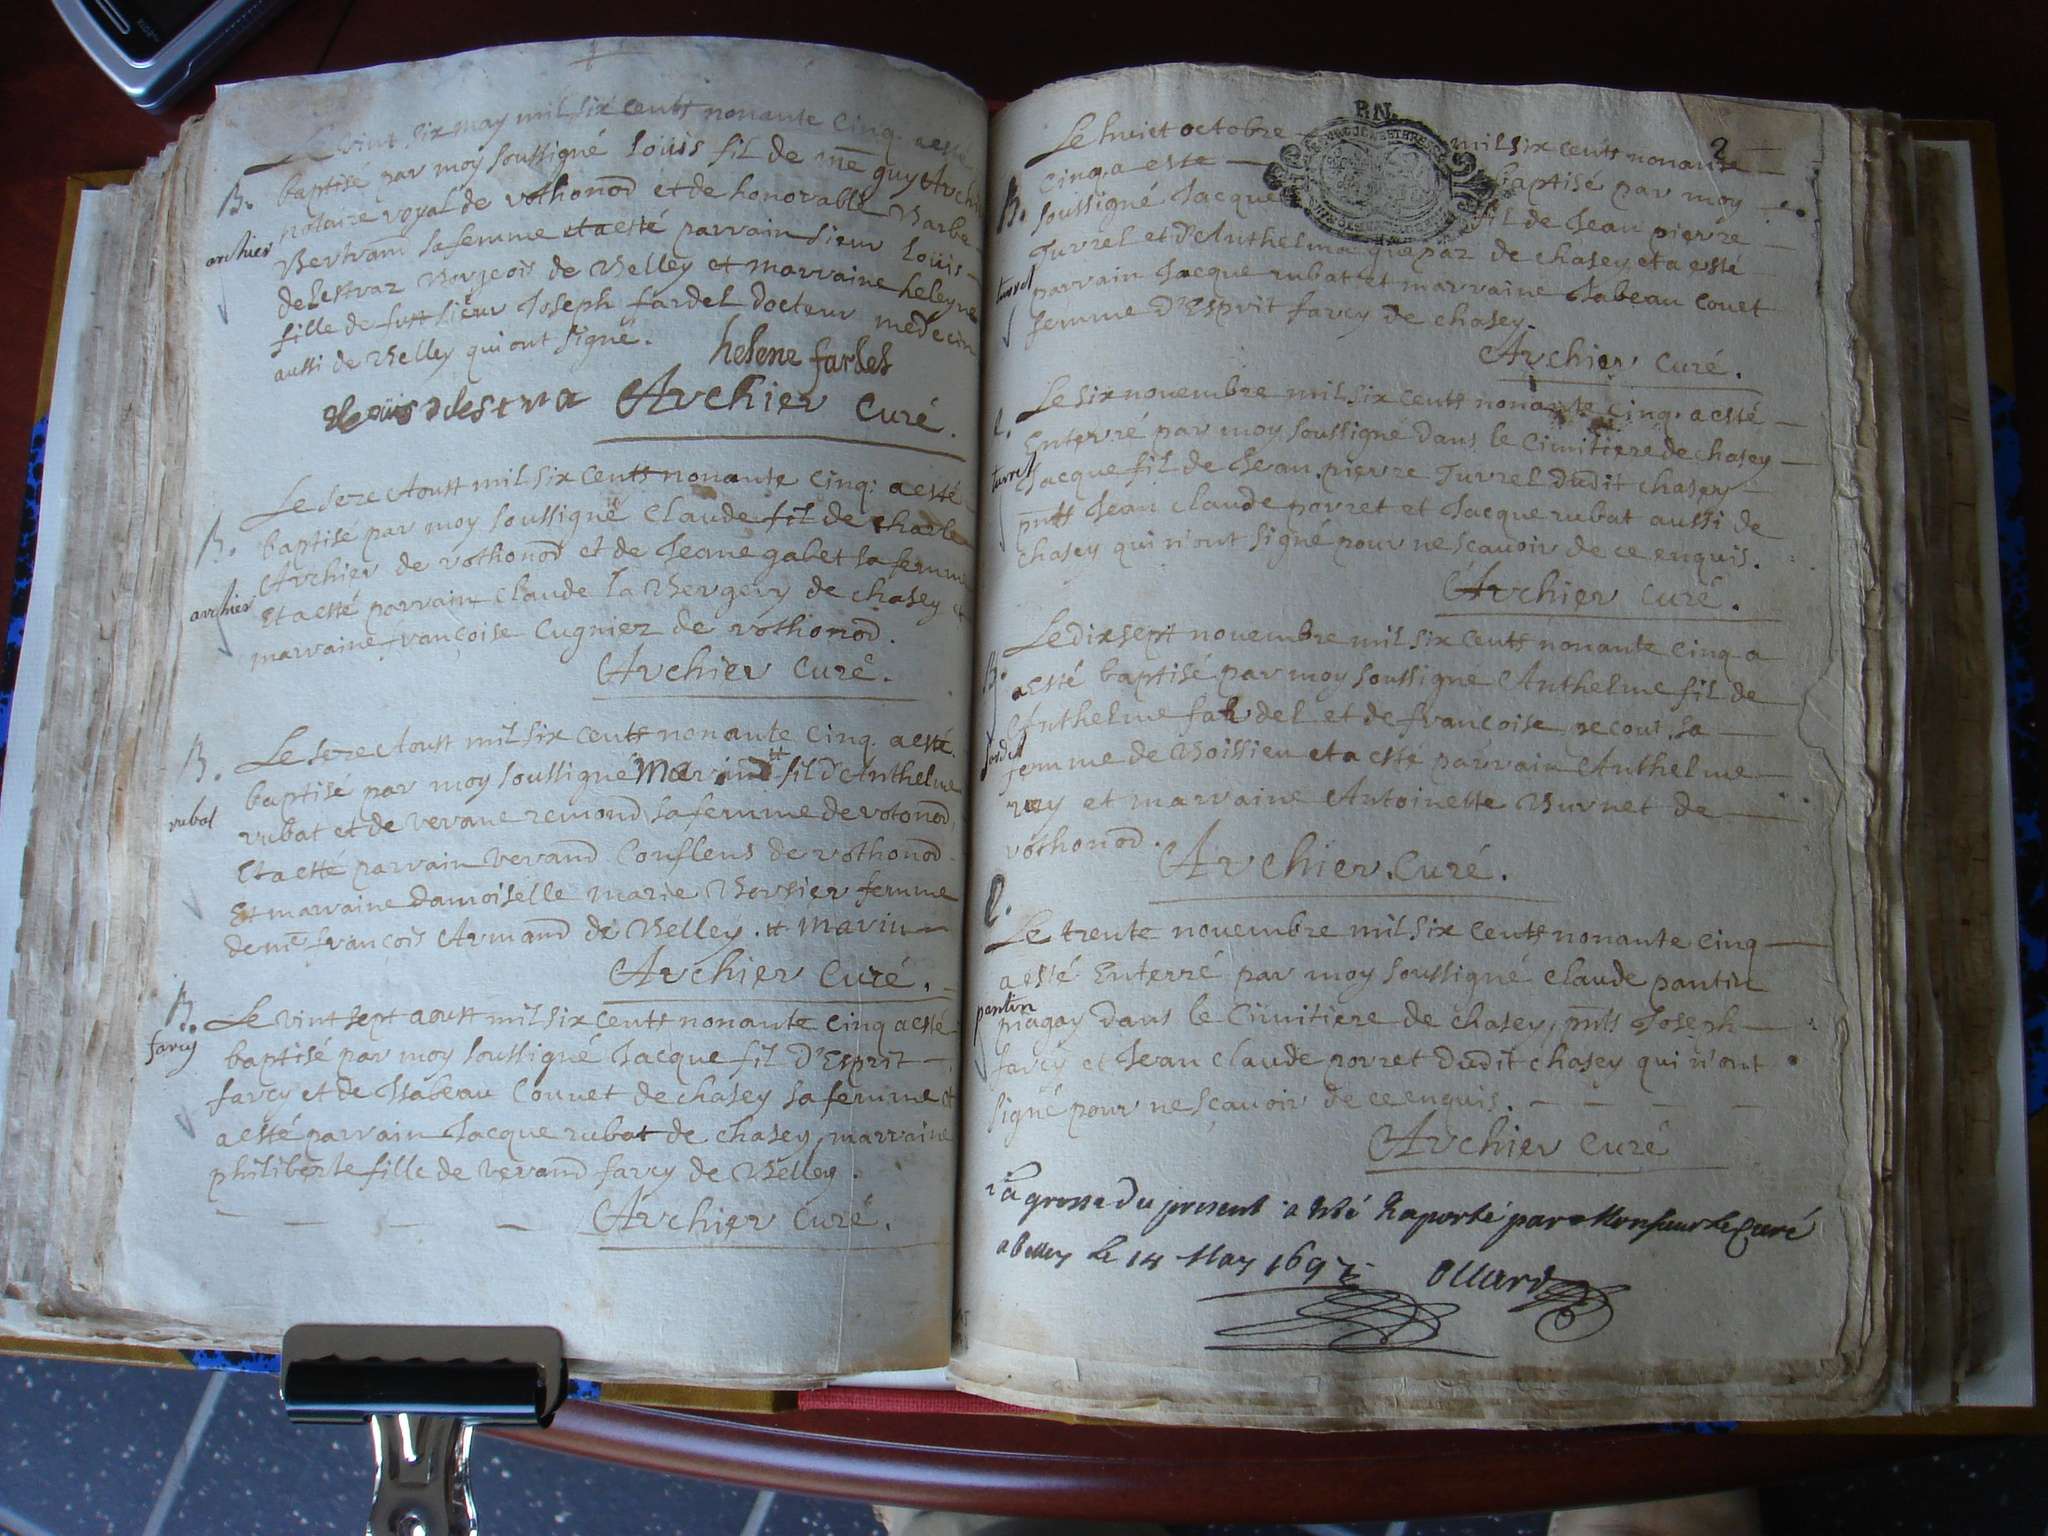 Le vint six may mil six cents nonante cinq. a esté
B. baptisé par moy soussigné Loüis fil de me guy Archier
notaire royal de vothonod et de honorable Barbe
archier
Bertrand sa femme et a esté parrain sieur Loüis
delestraz Bourjois de Belley et marraine heleyne
fille de futt sieur Joseph fardel docteur medecin
aussi de Belley qui ont signé.
helene fardel
Loüis delestra Archier curé.
Le seze Aoust mil six cents nonante cinq. a esté
B. baptisé par moy soussigné Claude fil de charle
Archier de vothonod et de Jeane gabet sa femme
archier
Et a esté parrain Claude la Bergery de chasey et
marraine françoise Cugniez de vothonod.
Archier curé.
Le seze Aoust mil six cents nonante cinq. a esté
B. baptisé par moy soussigné fil d'Anthelme
rubat
rubat et de verane remond sa femme de votonod,
Et a esté parrain verand Conflens de vothonod
Et marraine damoiselle marie Bersier femme
de me françois Armand de Belley. tt marin
Archier curé.
B. Le vint sept aoust mil six cents nonante cinq a esté
farcy
baptisé par moy soussigné Jacque fil d'Esprit
farcy et de Isabeau Couuet de chasey sa femme et
a esté parrain Jacque rubat de chasey, marraine
philiberte fille de verand farcy de Belley.
Archier curé.
RN.
2
Le huict octobre mil six cents nonante
cinq. a este baptisé par moy
B. soussigné Jacque fil de Jean pierre
Turrel et d'Anthelma de chasey, et a esté
turrel
parrain Jacque rubat et marraine Isabeau Couet
femme d'Esprit farcy de chasey.
Archier curé.
Le six novembre mil six cents nonante cinq. a esté
Enterré par moy soussigné dans le Cimitiere de chasey
turrel
Jacque fil de Jean pierre Turrel dudit chasey
pnts Jean claude porret et Jacque rubat aussi de
chasey qui n'ont signé pour ne scavoir de ce enquis.
Archier curé.
Le dix sept novembre mil six cents nonante cinq a
B. a esté baptisé par moy soussigné Anthelme fil de
Anthelme fardel et de françoise recout sa
fardel
femme de Boissieu et a esté parrain Anthelme
rey et marraine Antoinette Burnet de
vothonod.
Archier. curé.
Le trente novembre mil six cents nonante cinq
a esté Enterré par moy soussigné claude pantin
pantin
magay dans le Cimitiere de chasey, pnts Joseph
farcy et Jean claude porret dudit chasey qui n'ont
signé pour ne sçavoir de ce enquis.
Archier curé
La grosse du present a été raporté par Monsieur le Curé
a belley le 14 May 1697
Ollard